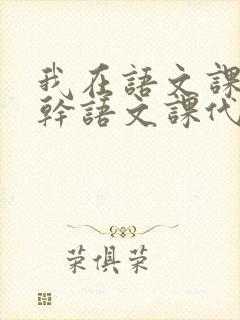 我在語文課
幹語文課代
荣俱荣